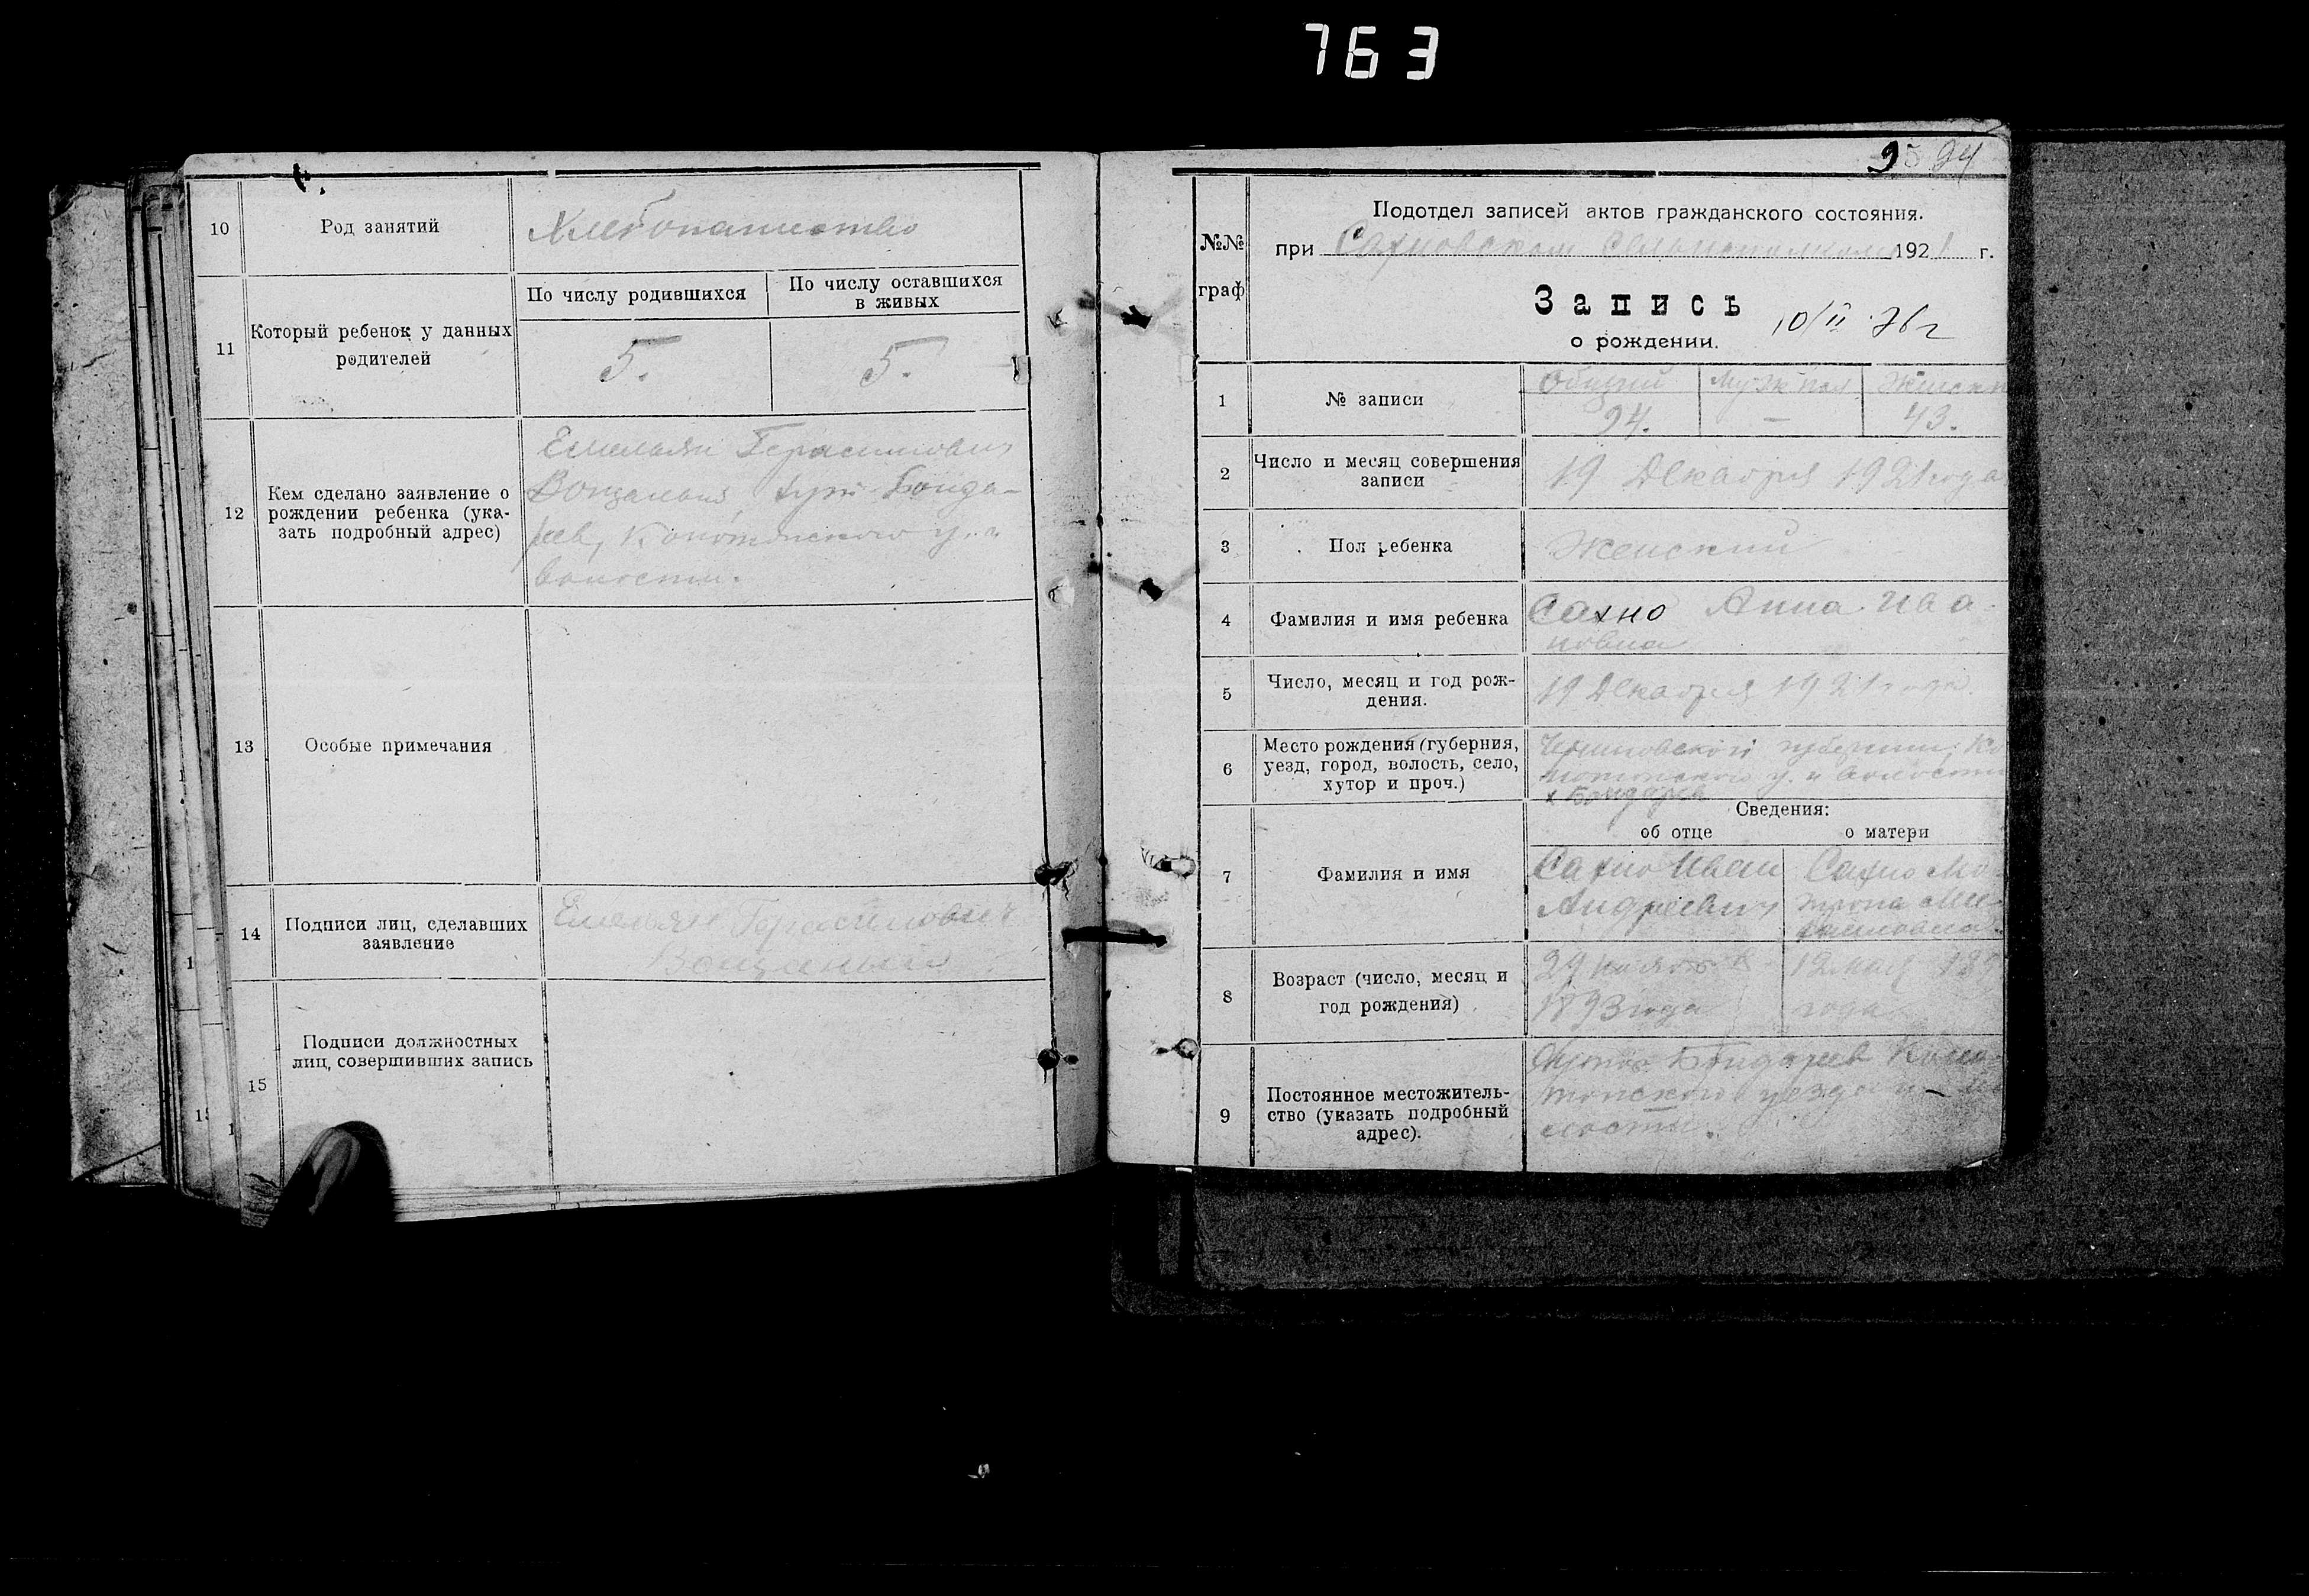 763
10
Род занятий
Хлебопашество
11
Который ребенок у данных
родителей
По числу родившихся
По числу оставшихся
в живых
5.
5.
12
Кем сделано заявление о
рождении ребенка (ука-
зать подробный адрес)
Емельян Герасимович
хут. Бонда-
рев, Конотопского у. и
волости.
13
Особые примечания
14
Подписи лиц, сделавших
заявление
Емельян Герасимович
15
Подписи должностных
лиц, совершивших запись
94
№№
граф
Подотдел записей актов гражданского состояния.
при Сахновском 1921 г.
Запись
о рождении.
10/II 76 г
1
№ записи
Общий
Муж пол
Женск п
94.
—
43.
2
Число и месяц совершения
записи
19 Декабря 1921 года
3
Пол ребенка
Женский
4
Фамилия и имя ребенка
Сахно Анна Ива
новна
5
Число, месяц и год рож-
дения.
19 Декабря 1921 года.
6
Место рождения (губерния,
уезд, город, волость, село,
хутор и проч.)
Черниговской губернии, Ко
нотопского у. и волости
х Бондарев
Сведения:
об отце
о матери
7
Фамилия и имя
Сахно Иван
Андреевич
Сахно Мо
трона
8
Возраст (число, месяц и
год рождения)
29
1893 года
12 мая
года
9
Постоянное местожитель-
ство (указать подробный
адрес).
Хутор Бондарев Коно
топского уезда и во
лости.